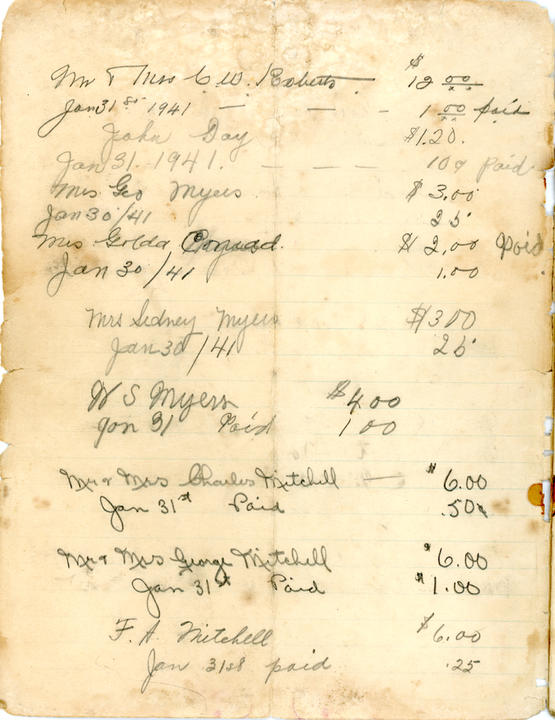 Mr & Mrs C. W. Roberts $ 12 00
Jan 31st 1941 — — — 1 00 paid
John Day $1.20.
Jan 31. 1941. — — — 10¢ Paid.
Mrs Geo Myers $ 3.00
Jan 30/41 25
Mrs Golda Conrad. $ 2.00 Paid
Jan 30/41 1.00
Mrs Sidney Myers $3 00
Jan 30/41 25
W S Myers $4 00
Jan 31 Paid 1 00
Mr & Mrs Charles Mitchell — $ 6.00
Jan 31st Paid .50¢
Mr & Mrs George Mitchell $ 6.00
Jan 31st Paid $1.00
F. A. Mitchell $6.00
Jan 31st paid .25